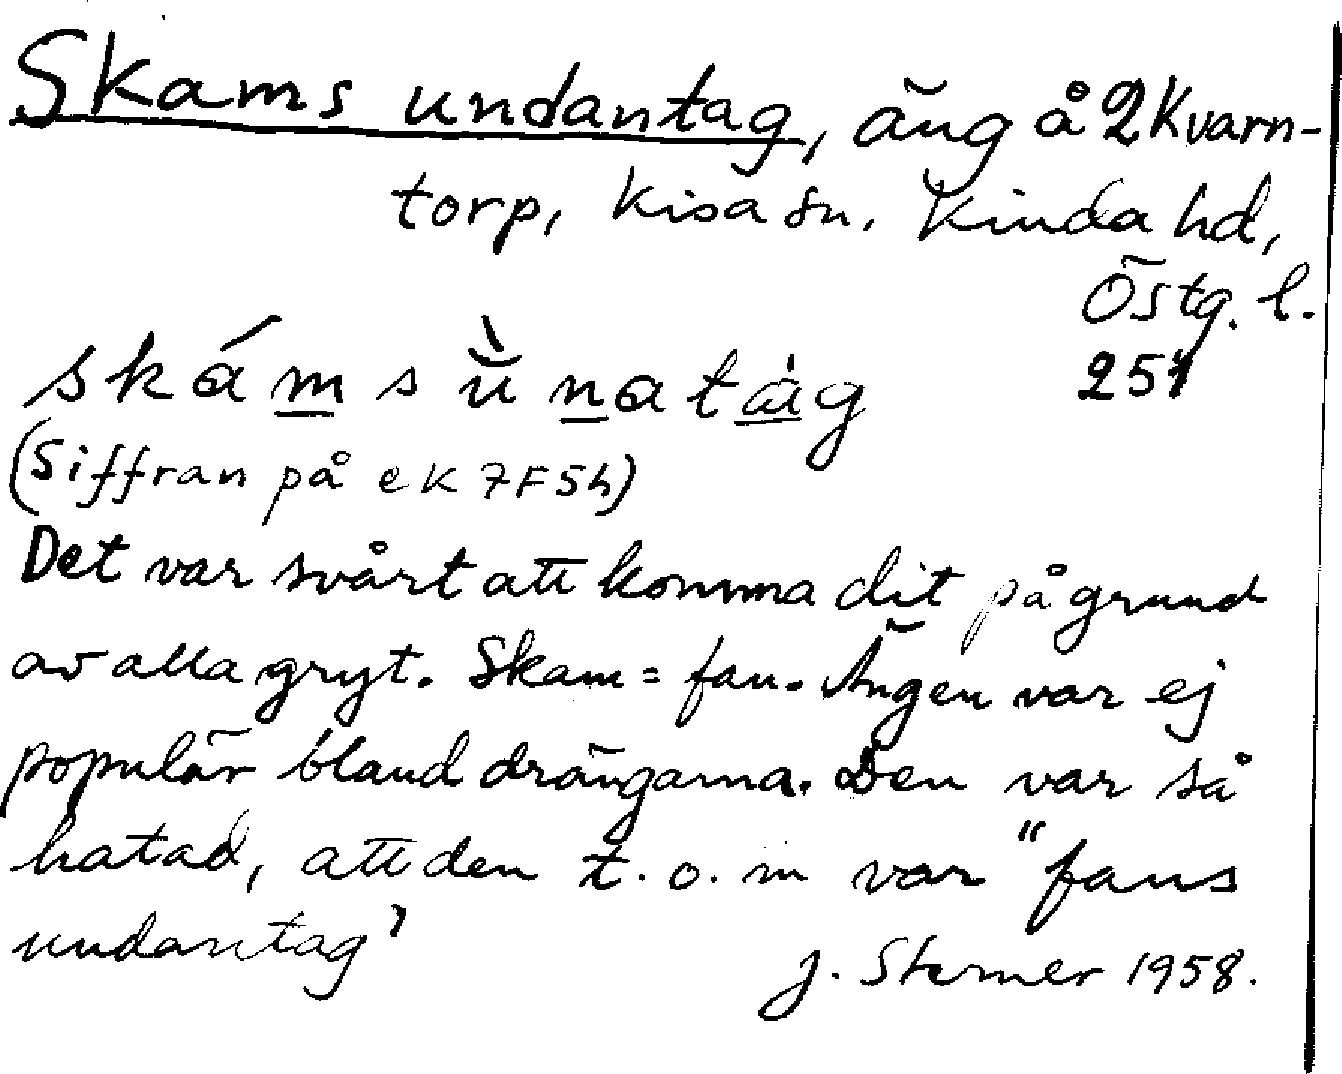 Skams undantag, äng å 2 Kvarn-
torp, Kisa sn, Kinda hd,
Östg. l.
skámsùnatàg 251
(Siffran på ek 7F5h)
Det var svårt att komma dit på grund
av alla gryt. Skam = fan. Ängen var ej
populär bland drängarna. Den var så
hatad, att den t.o.m var "fans
undantag"
J. Sterner 1958.